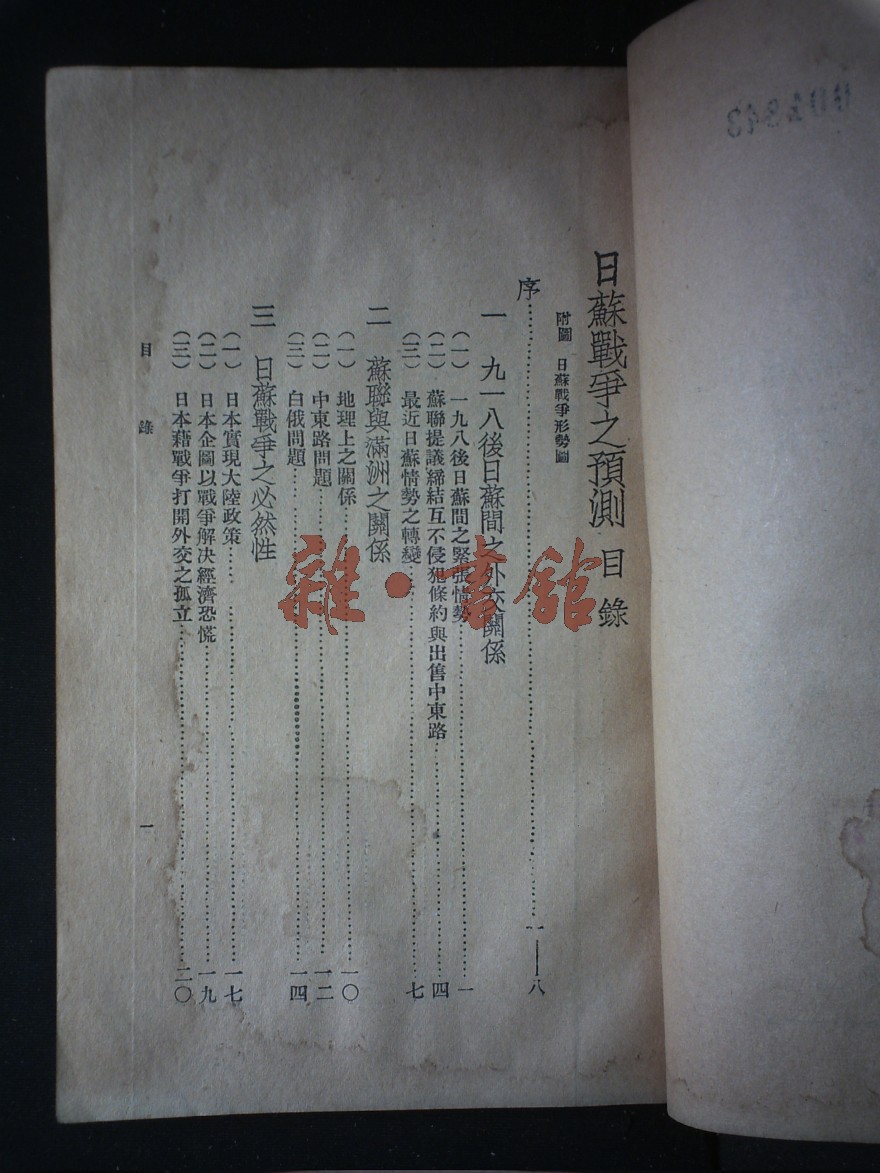 日蘇戰爭之預測 目錄
附圖 日蘇戰爭形勢圖
序……一——八
一 九一八後日蘇間之外交關係
(一) 一九八後日蘇間之緊張情勢……一
(二) 蘇聯提議締結互不侵犯條約與出售中東路……四
(三) 最近日蘇情勢之轉變……七
二 蘇聯與滿洲之關係
(一) 地理上之關係……一〇
(二) 中東路問題……一二
(三) 白俄問題……一四
三 日蘇戰爭之必然性
(一) 日本實現大陸政策……一七
(二) 日本企圖以戰爭解決經濟恐慌……一九
(三) 日本藉戰爭打開外交之孤立……二〇
目錄 一
雜·書館